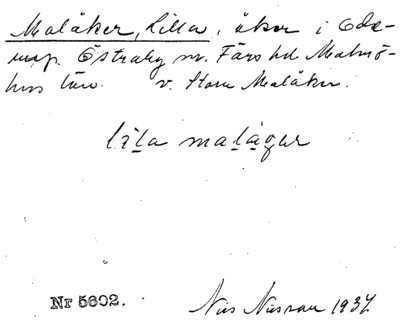 Malåker, Lilla, åker i Ode-
rup. Östraby sn. Färs hd Malmö-
hus län. v. Stora Malåker.
lila malågur
Nr 5602.
Nils Nilsson 1937